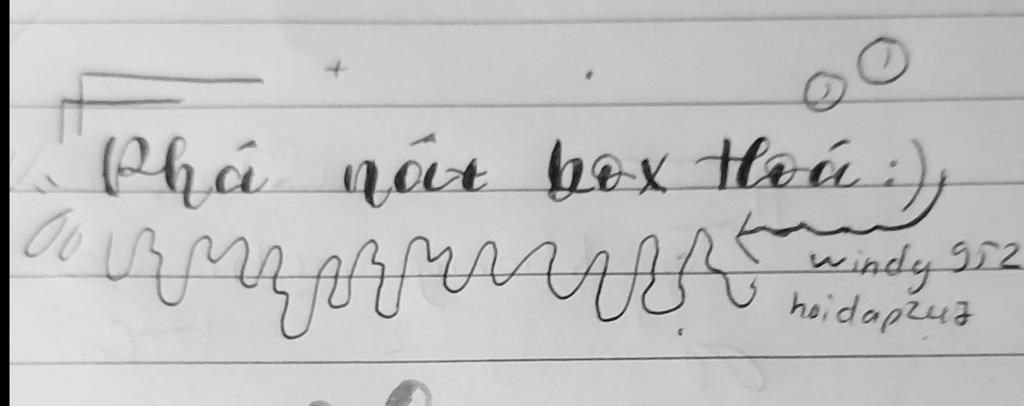 ① 
②
Phá nát box Hoá :),
windy 952
hoidap247